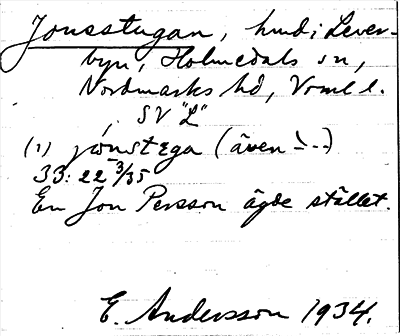 Jonsstugan, hmd i Lever-
byn, Holmedals sn,
Nordmarks hd, Vrml l.
SV "L"
(1) jo̱nstega (även `--)
33: 22 3/35
En Jon Persson ägde stället.
E. Andersson 1934.